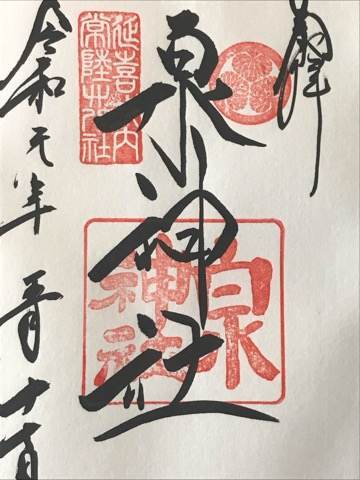 奉拝
泉神社
延喜式内
常陸廿八社
泉
神社
令和元年五月十一日